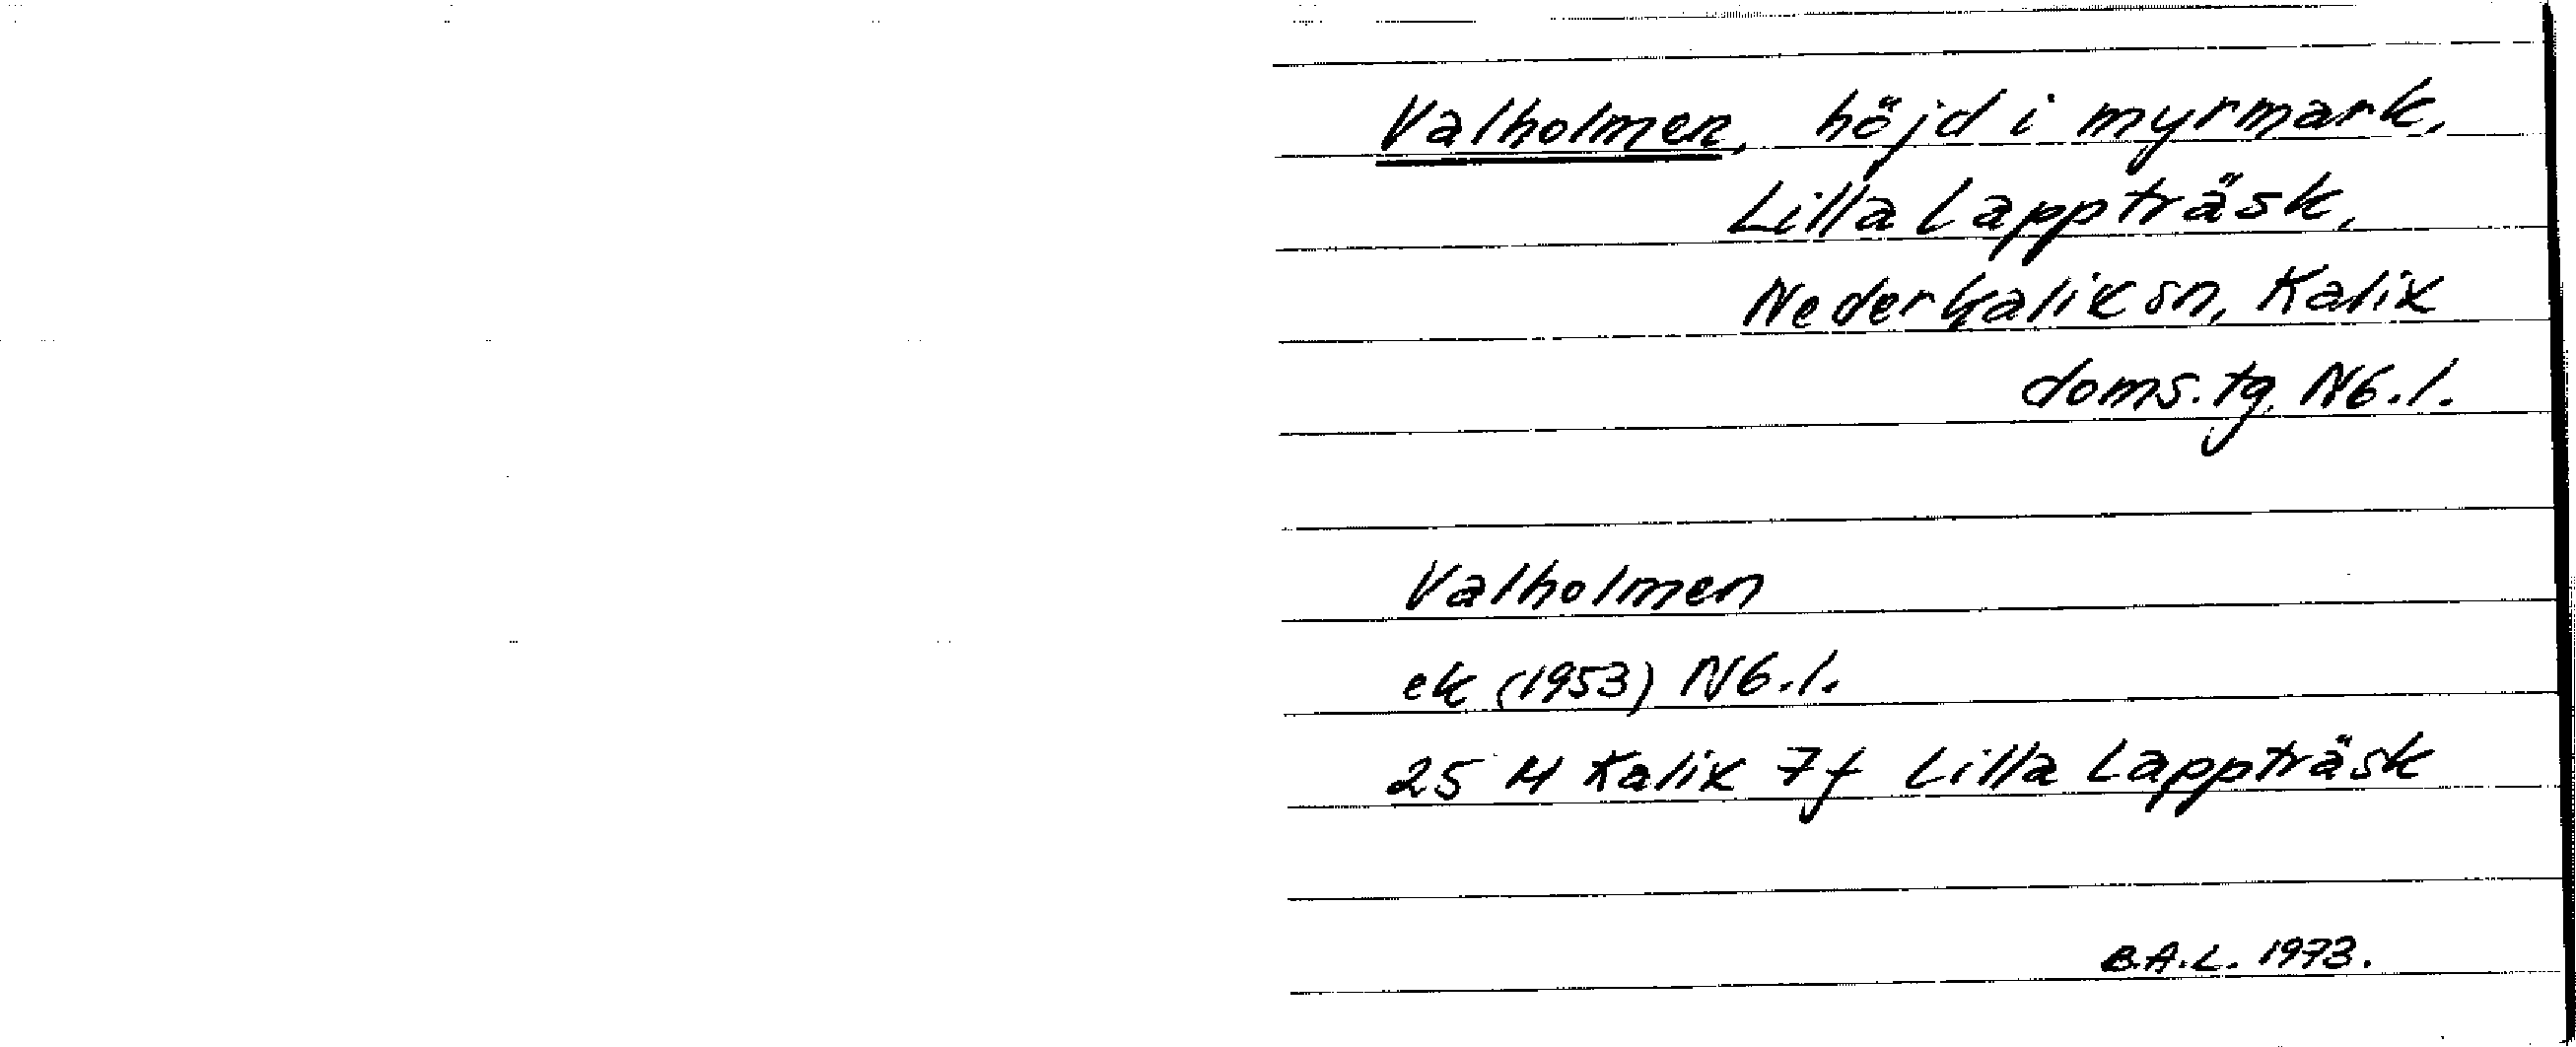 Valholmen, höjd i myrmark,
Lilla Lappträsk,
Nederkalix sn, Kalix
doms.tg. Nb.l.
Valholmen
ek (1953) Nb.l.
25 M Kalix 7f Lilla Lappträsk
B.A.L. 1973.